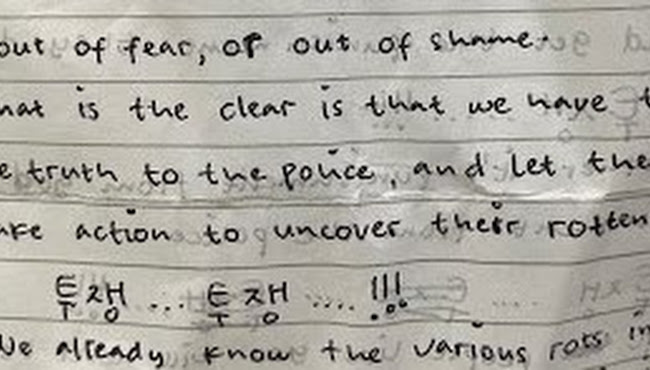 out of fear, or out of shame.
hat is the clear is that we have t
e truth to the police, and let the
ake action to uncover their rotten
E z H ... E z H .... !!!
T O T O
We already know the various rots in